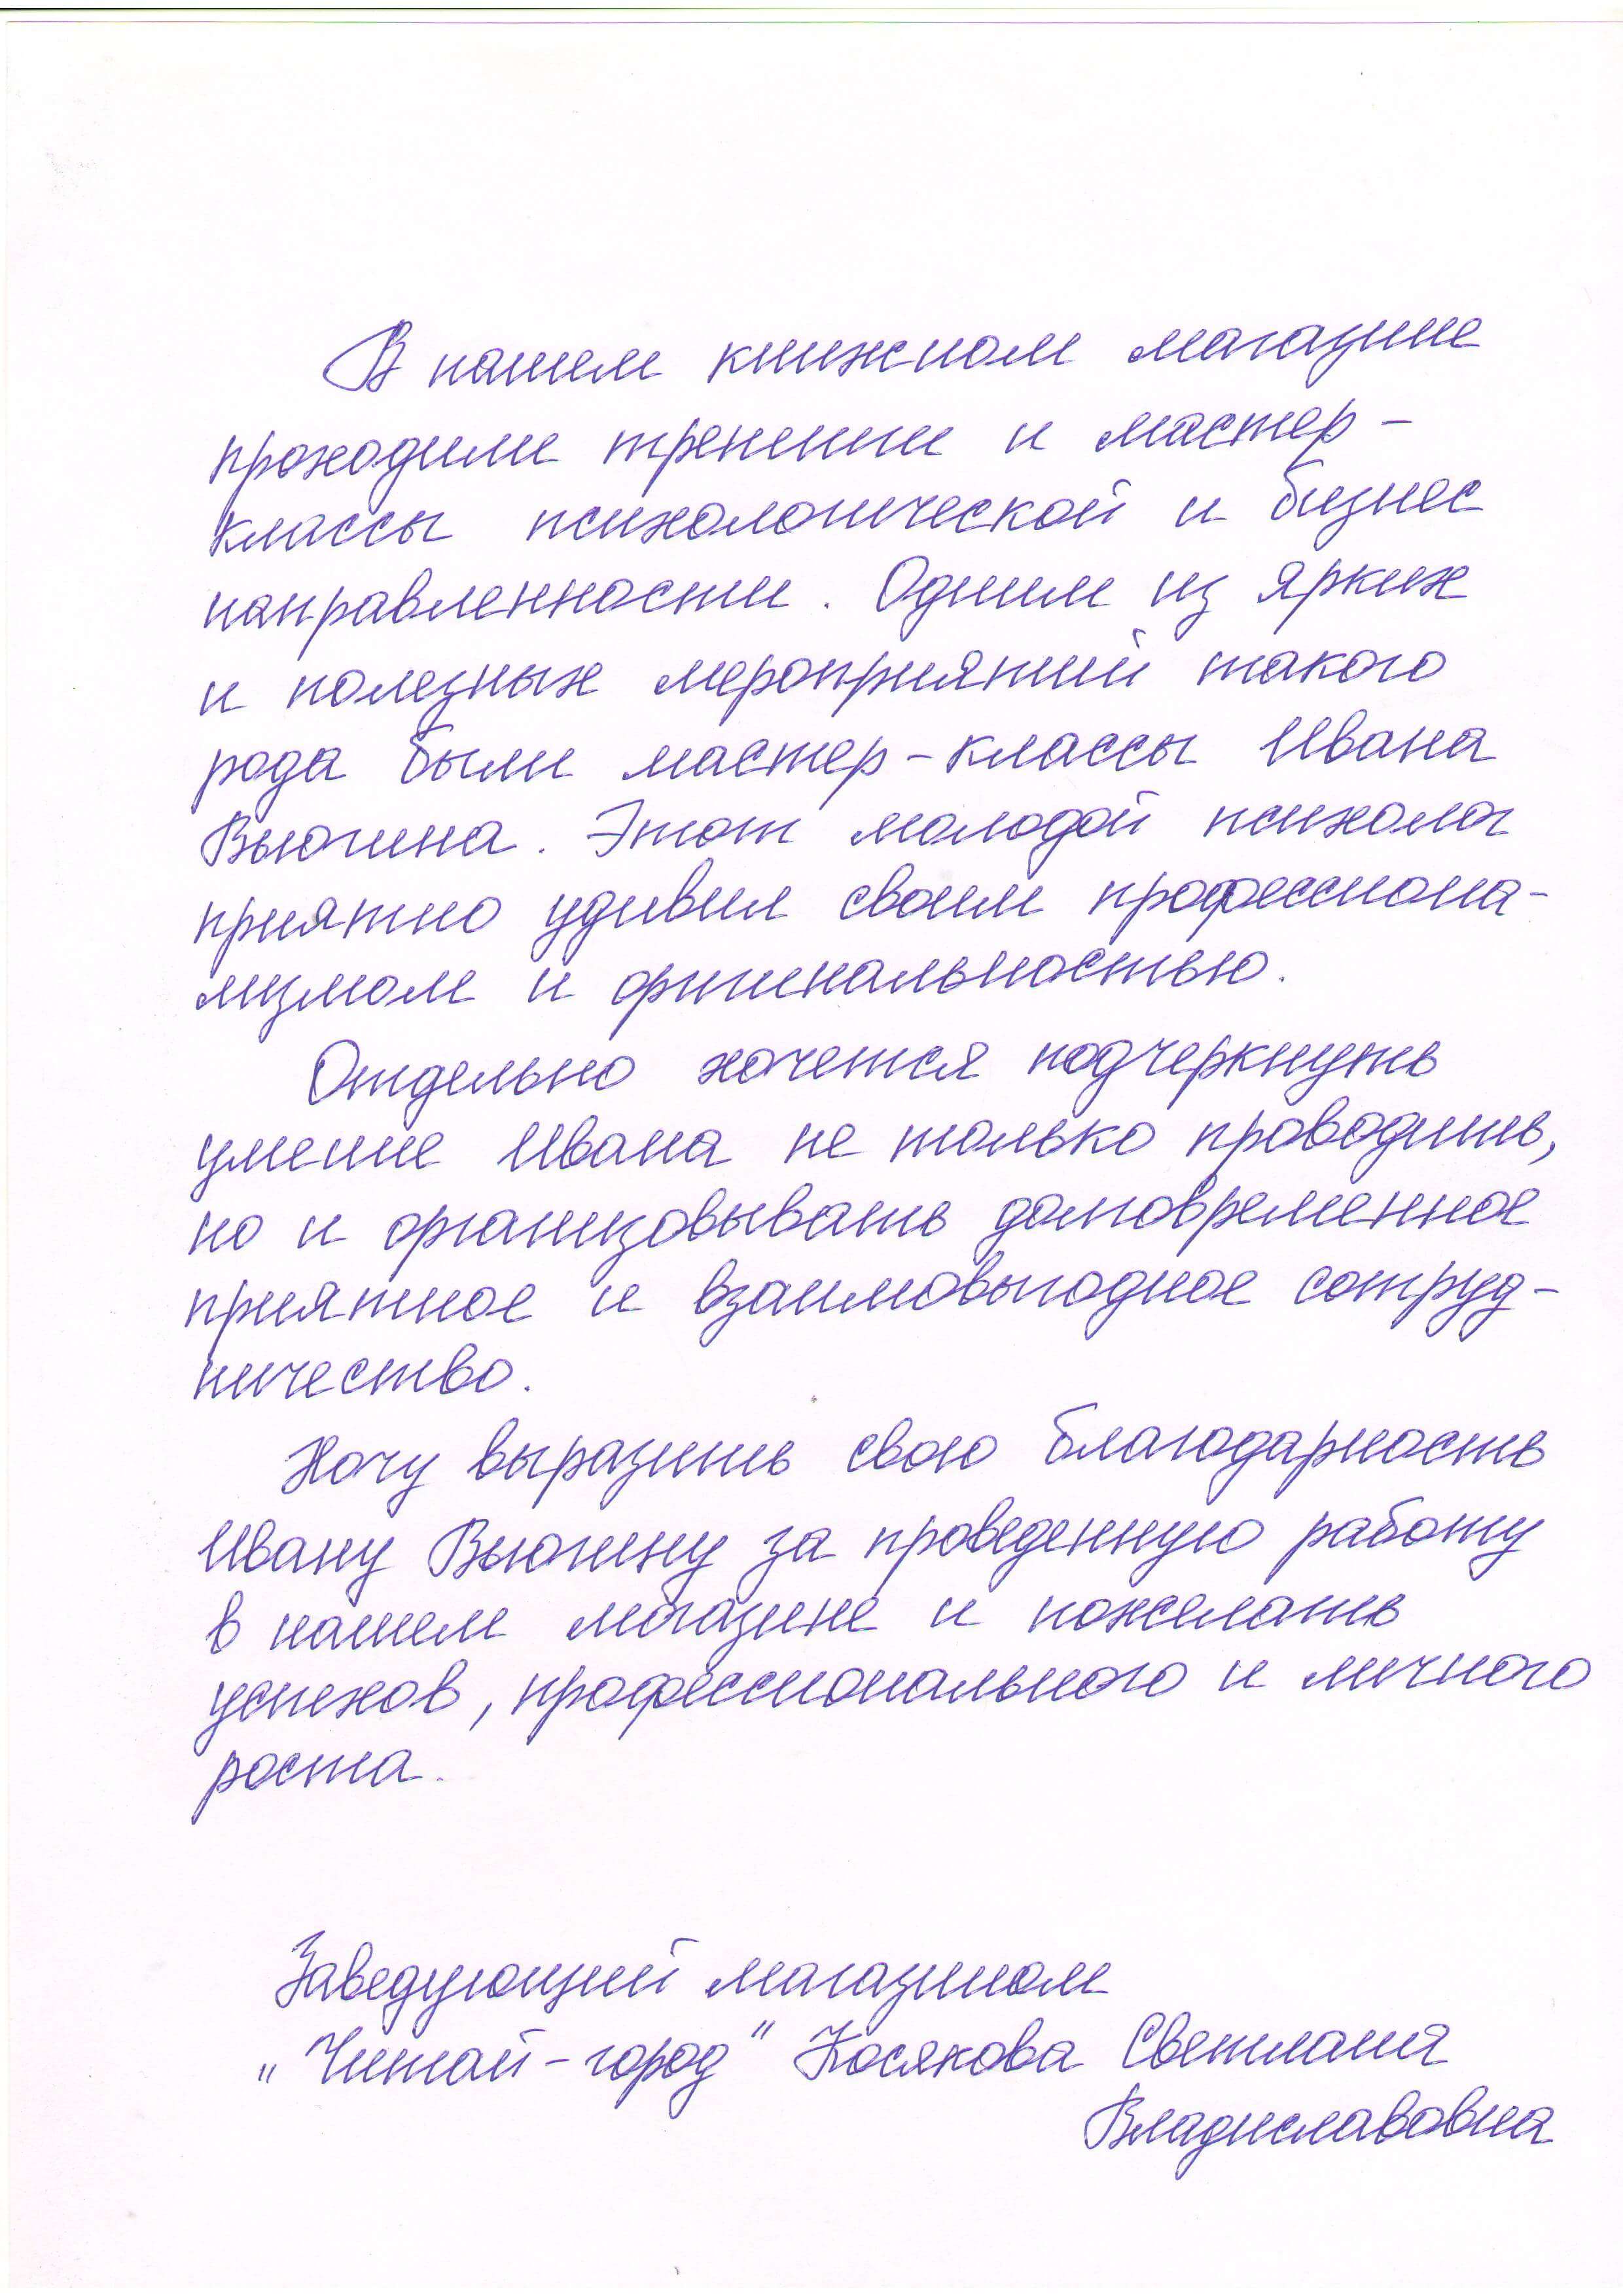 В нашем книжном магазине
проходили тренинги и мастер-
классы психологической и бизнес
направленности. Одним из ярких
и полезных мероприятий такого
рода были мастер-классы Ивана
Вьюгина. Этот молодой психолог
приятно удивил своим профессиона-
лизмом и оригинальностью.
Отдельно хочется подчеркнуть
умение Ивана не только проводить,
но и организовывать долговременное
приятное и взаимовыгодное сотруд-
ничество.
Хочу выразить свою благодарность
Ивану Вьюгину за проведенную работу
в нашем магазине и пожелать
успехов, профессионального и личного
роста.
Заведующий магазином
„Читай-город" Косякова Светлана
Владиславовна